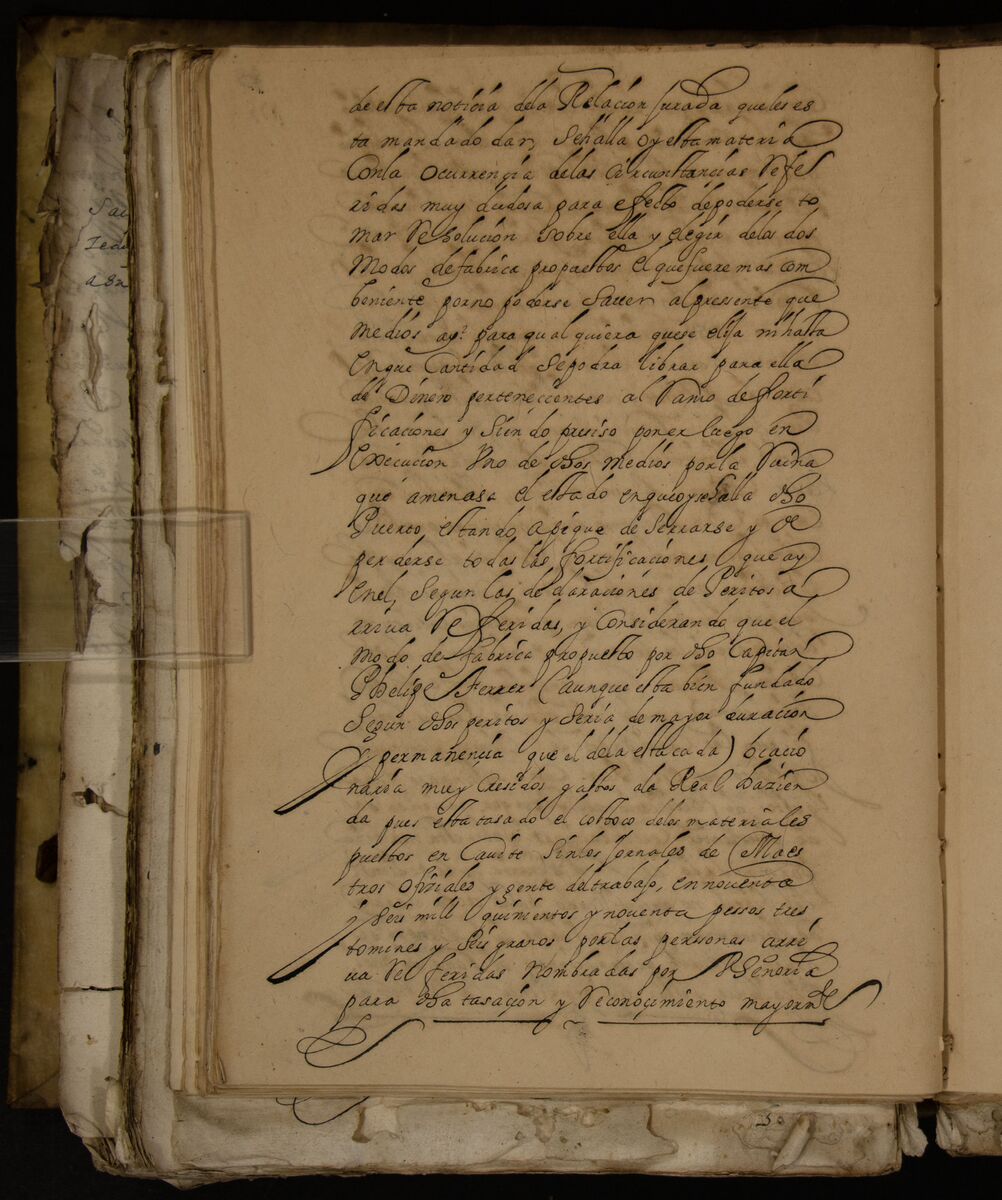 de esta noticia dela Relacion jurada queles es
ta mandado dar, sehalla oy esta materia
Conla ocurrençia delas circunstancias Refe
ridas muy dudosa para efecto depoderse to
mar Resolucion sobre ella y elegir delos dos
modos defabrica propuestos el quefuere mas com
beniente porno poderse saver alpressente que
medios ay para qualquiera quese elija nihasta
enque Cantidad sepodra librar para ella
de Dinero pertenecientes al Ramo de forti
ficaciones y siendo presiso poner luego en
execucion Uno de dhos medios porla Ruina
que amenasa el estado enque oy sehalla dho
Puerto, estando apique de serrarse y de
perderse todas las fortificaciones, que ay
enel, segun las declaraciones de Peritos a
rriva Referidas, y considerando que el
modo de fabrica propuesto por dho Capitan
Phelipe Ferrer (aunque esta bien fundado
segun dhos peritos y seria de mayor duraçion
y permanencia que el dela estacada) ocacio
naria muy cresidos gastos ala Real hazien
da pues esta tasado el costo delos materiales
puestos en Cavite sinlos jornales de Maes
tros ofiziales y gente deltrabajo, en noventa
y seis mill quinientos y noventa pessos tres
tomines y seis granos porlas perssonas arri
va Referidas nombradas por Vsseñoria
para dha tasaçion y Reconoçimiento mayormte